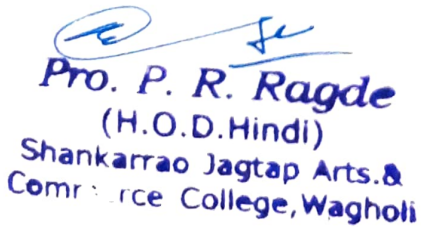 Pro. P. R. Ragde
(H.O.D.Hindi)
Shankarrao Jagtap Arts.&
Comr : rce College, Wagholi